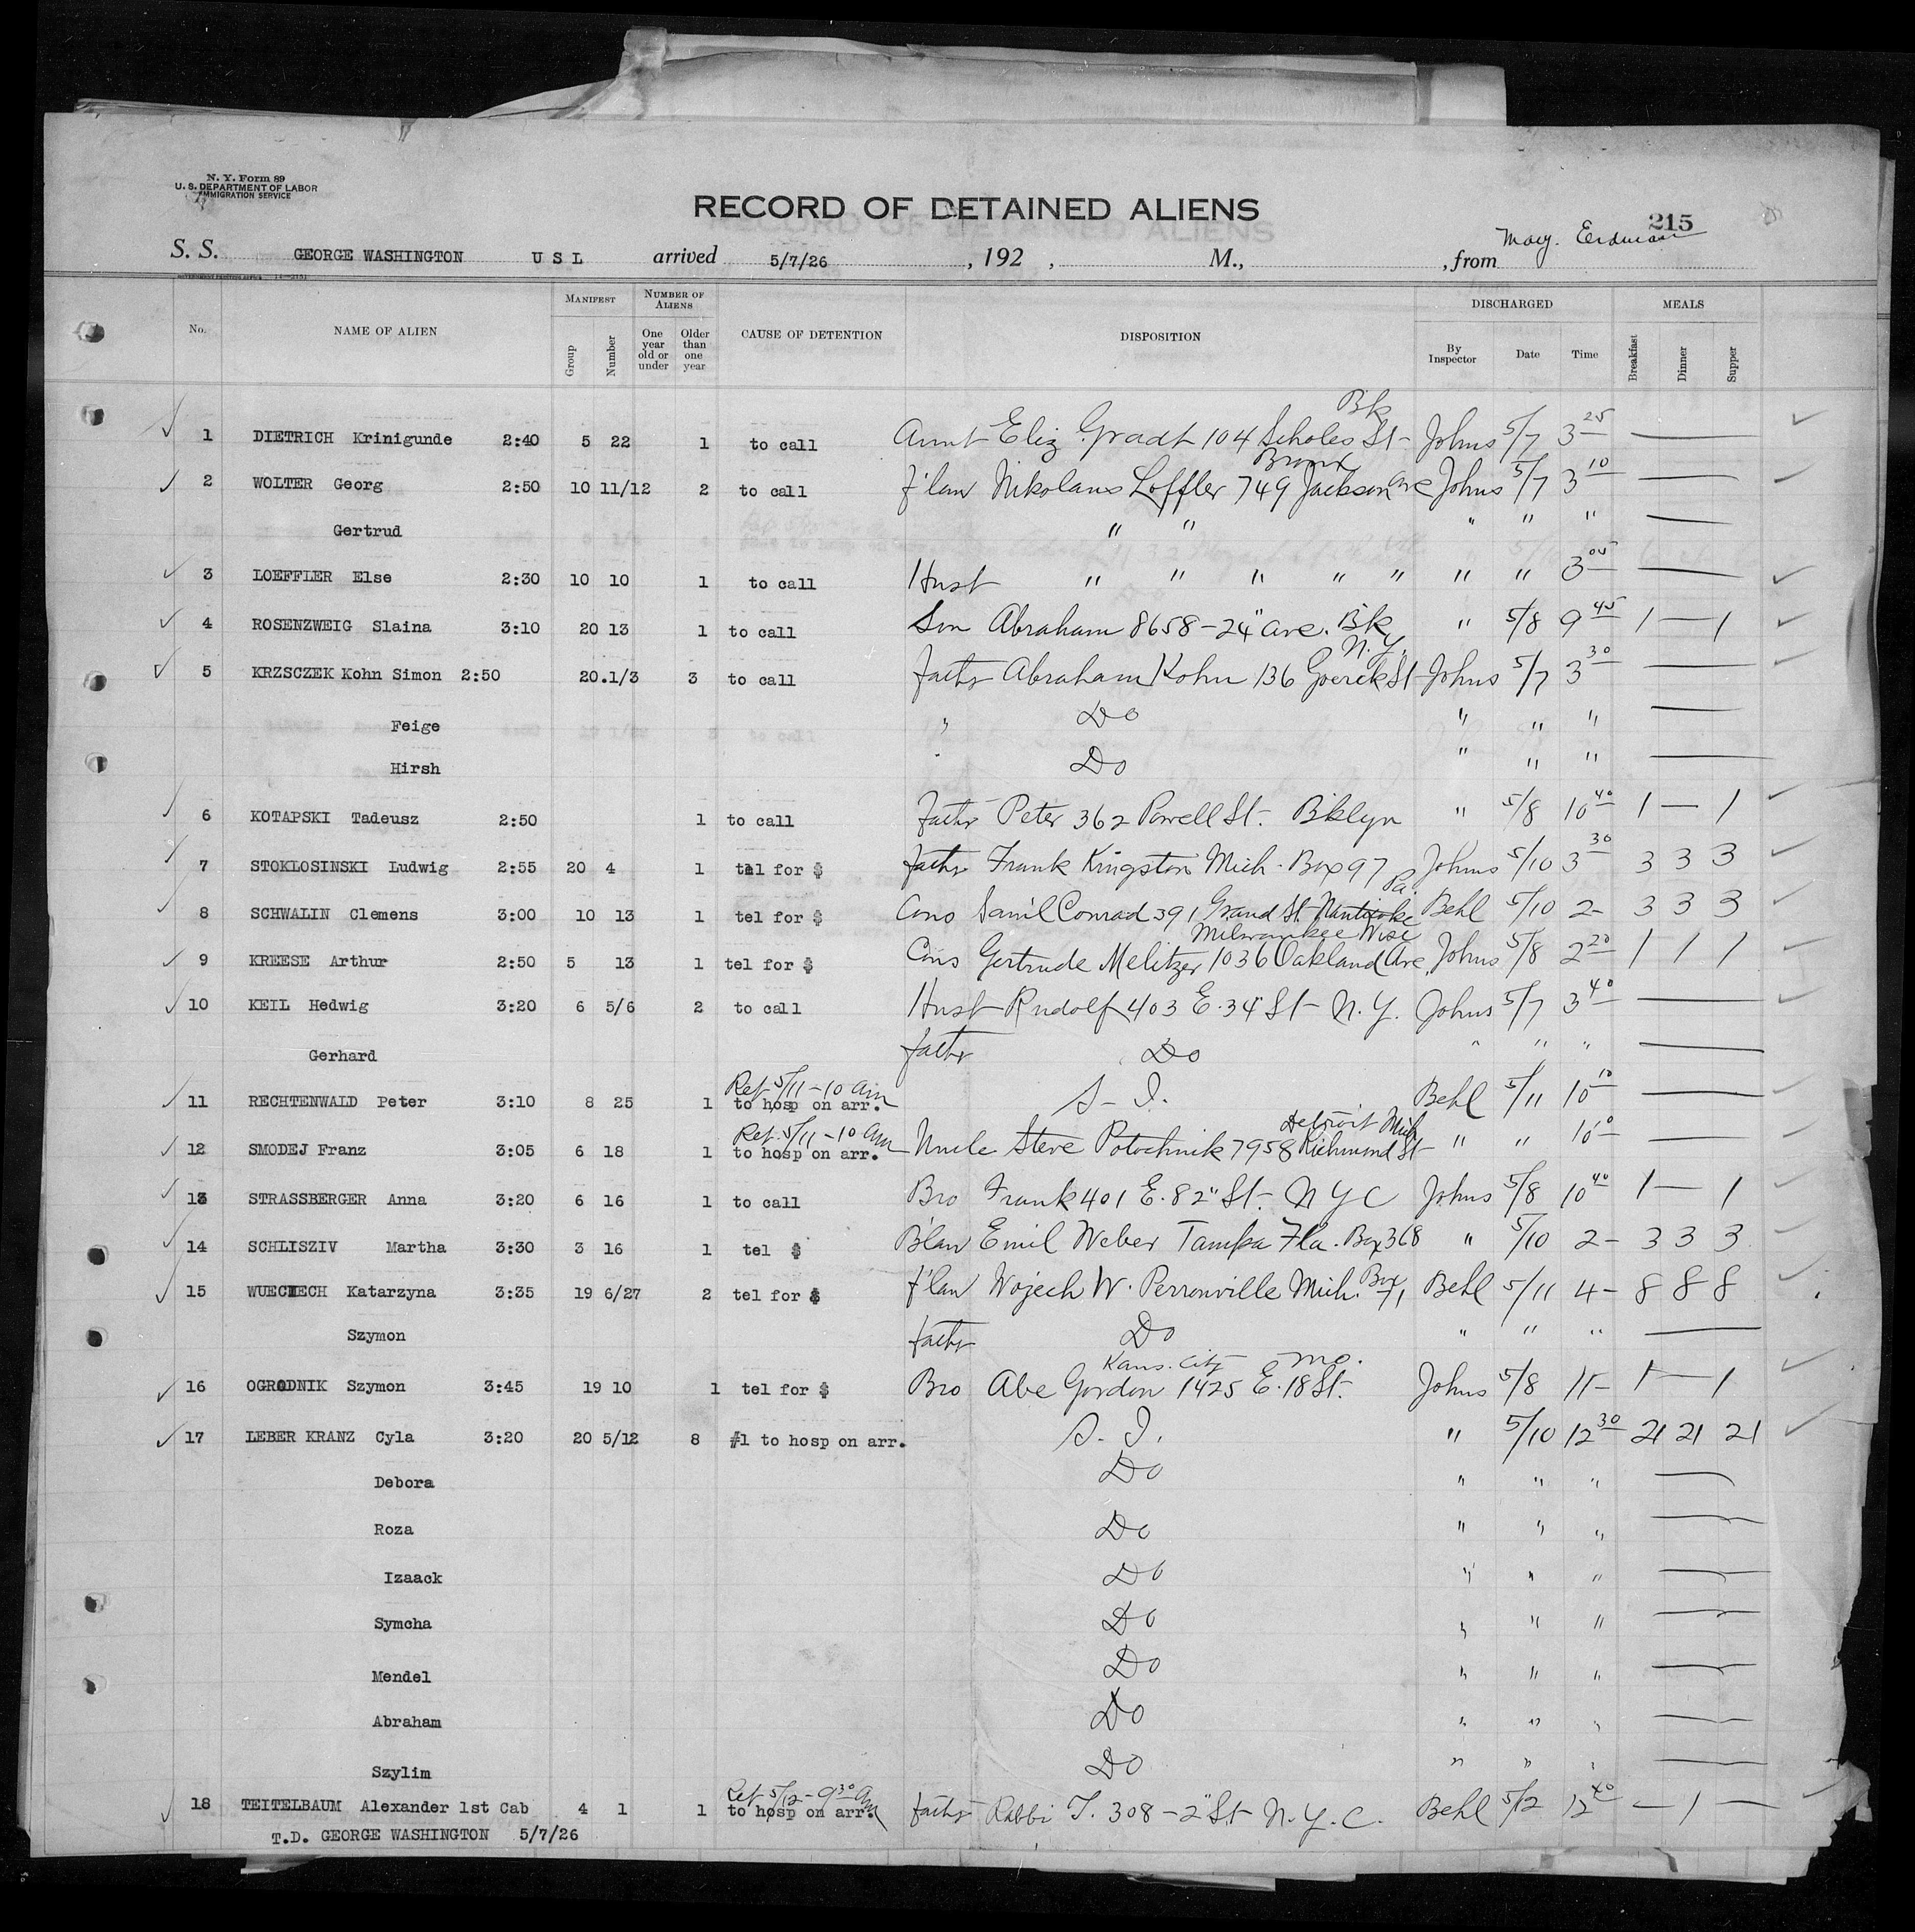 N. Y. Form 89
U. S. DEPARTMENT OF LABOR
IMMIGRATION SERVICE
RECORD OF DETAINED ALIENS
215
S. S. GEORGE WASHINGTON U S L arrived 5/7/26, 192 , M., , from
No. NAME OF ALIEN MANIFEST Group Number NUMBER OF ALIENS One year old or under Older than one year CAUSE OF DETENTION DISPOSITION DISCHARGED By Inspector Date Time MEALS Breakfast Dinner Supper
Bk
1 DIETRICH Krinigunde 2:40 5 22 1 to call Aunt Eliz Gradt 104 Scholes St- Johns 5/7 3 25
Bronx
2 WOLTER Georg 2:50 10 11/12 2 to call f'law Nikolaus Loffler 749 Jackson Ave Johns 5/7 3 10
Gertrud " " " " "
3 LOEFFLER Else 2:30 10 10 1 to call Husb " " " " " " " 3 05
4 ROSENZWEIG Slaina 3:10 20 13 1 to call Son Abraham 8658-24" Ave. Bk " 5/8 9 45 1 — 1
N.Y.
5 KRZSCZEK Kohn Simon 2:50 20.1/3 3 to call Fathr Abraham Kohn 136 Goerck St- Johns 5/7 3 30
Feige " Do " " "
Hirsh " Do " " "
6 KOTAPSKI Tadeusz 2:50 1 to call Fathr Peter 362 Powell St. Bklyn " 5/8 10 40 1 — 1
7 STOKLOSINSKI Ludwig 2:55 20 4 1 tel for $ Fathr Frank Kingston Mich. Box 97 Johns 5/10 3 30 3 3 3
Pa.
8 SCHWALIN Clemens 3:00 10 13 1 tel for $ Cons Saml Conrad 391 Grand St. Nanticoke Behl 5/10 2- 3 3 3
Milwaukee Wisc
9 KREESE Arthur 2:50 5 13 1 tel for $ Cons Gertrude Melitzer 1036 Oakland Ave. Johns 5/8 2 20 1 1 1
10 KEIL Hedwig 3:20 6 5/6 2 to call Husb Rudolf 403 E. 34" St- N.Y. Johns 5/7 3 40
Gerhard fathr Do " " "
Ret 5/11-10 am
11 RECHTENWALD Peter 3:10 8 25 1 to hosp on arr. S-I. Behl 5/11 10 10
Ret 5/11-10 am Detroit Mich
12 SMODEJ Franz 3:05 6 18 1 to hosp on arr. Uncle Steve Potochnik 7958 Richmond St- " " 10 10
13 STRASSBERGER Anna 3:20 6 16 1 to call Bro Frank 401 E. 82" St- NYC Johns 5/8 10 40 1 — 1
14 SCHLISZIV Martha 3:30 3 16 1 tel $ B'law Emil Weber Tampa Fla. Box 368 " 5/10 2- 3 3 3
15 WUECIECH Katarzyna 3:35 19 6/27 2 tel for $ f'law Wojech W. Perronville Mich. Box 71 Behl 5/11 4- 8 8 8
Szymon fathr Do " " "
Kans. City Mo.
16 OGRODNIK Szymon 3:45 19 10 1 tel for $ Bro Abe Gordon 1425 E. 18 St. Johns 5/8 11- 1 — 1
17 LEBER KRANZ Cyla 3:20 20 5/12 8 #1 to hosp on arr. S. I. " 5/10 12 30 21 21 21
Debora Do " " "
Roza Do " " "
Izaack Do " " "
Symcha Do " " "
Mendel Do " " "
Abraham Do " " "
Szylim Do " " "
Ret 5/12-9 30 AM
18 TEITELBAUM Alexander 1st Cab 4 1 1 to hosp on arr. fathr Rabbi T. 308-2" St- N.Y.C. Behl 5/12 12 40 — 1 —
T.D. GEORGE WASHINGTON 5/7/26